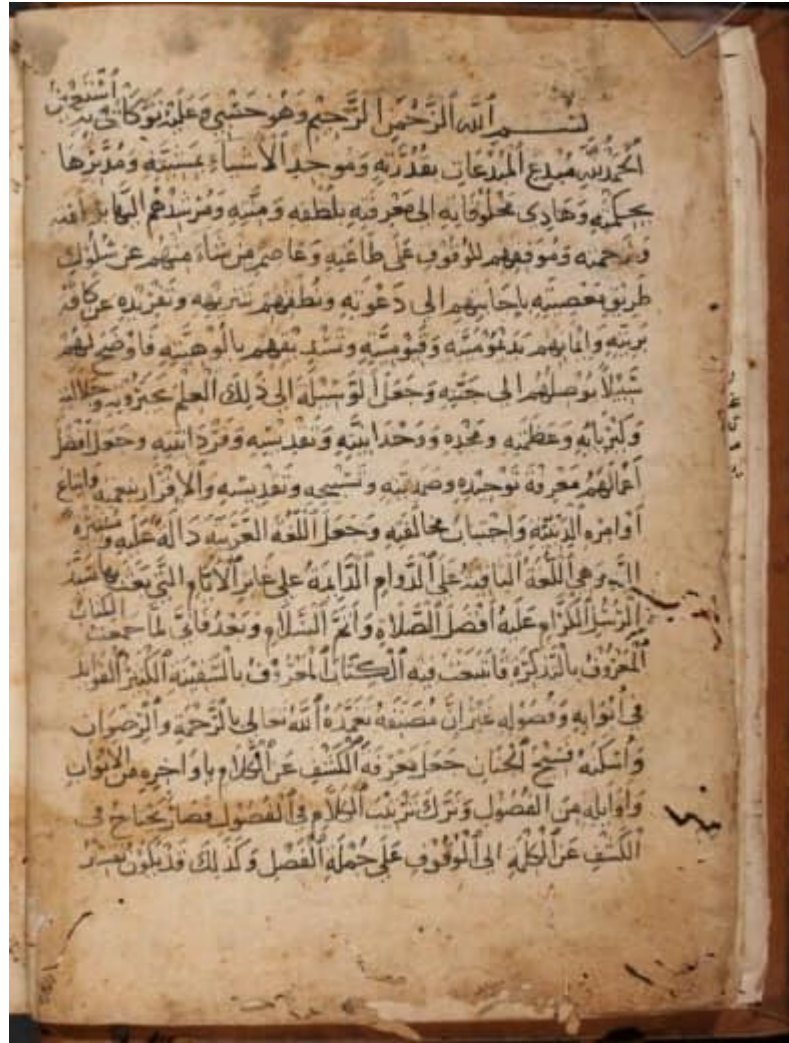 بسم الله الرحمن الرحيم وهو حسبي وعليه توكلي وبه أستعين
الحمد لله مبدع المبدعات بقدرته وموجد الأشياء بمشيته ومدبرها
بحكمته وهادي مخلوقاته الى معرفته بلطفه ومنته ومرشدهم اليها برأفته
ورحمته وموفقهم للوقوف على طاعته وعاصم من شاء منهم عن سلوك
طريق معصيته باجابتهم الى دعوته ونطقهم بتنزيهه وتفريده عن كافة
بريته وايمانهم بديموميته وقيوميته وتشدقهم بالوهيته فاوضح لهم
سبيلا يوصلهم الى جنته وجعل الوسيلة الى ذلك العلم بجبروته وجلاله
وكبريائه وعظمته ومجده ووحدانيته وتقديسه وفردانيته وجعل افضل
أعمالهم معرفة توحيده وصمديته وتسبيحه وتقديسه والاقرار بنعمته واتباع
أوامره الدينية واجتناب مخالفته وجعل اللغة العربية دالة عليه و
اليه وهي اللغة الباقية على الدوام القائمة على غابر الأيام التي بعث بها سيد
الرسل الكرام عليه أفضل الصلاة وأتم السلام وبعد فاني لما جمعت الكتاب
المعروف بالتذكرة فانتخبت فيه الكتاب المعروف بالسفينة الكثير الفوايد
في أبوابه وفصوله غير ان مصنفه تغمده الله تعالى بالرحمة والرضوان
وأسكنه فسيح الجنان جعل معرفة الكشف عن الكلام باواخره من الابواب
واوايله من الفصول وترك ترتيب الكلام في الفصول فصار يحتاج في
الكشف عن الكلمة الى الوقوف على جملة الفصل وكذلك قد يكون